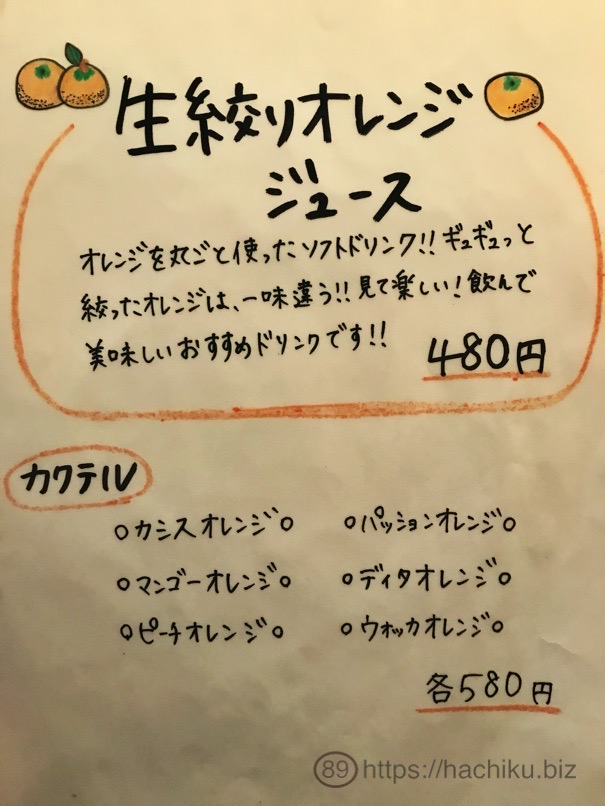 生絞りオレンジ
ジュース
オレンジを丸ごと使ったソフトドリンク!!ギュギュっと
絞ったオレンジは、一味違う!!見て楽しい!飲んで
美味しいおすすめドリンクです!!
480円
カクテル
○カシスオレンジ○ ○パッションオレンジ○
○マンゴーオレンジ○ ○ディタオレンジ○
○ピーチオレンジ○ ○ウォッカオレンジ○
各580円
89 https://hachiku.biz